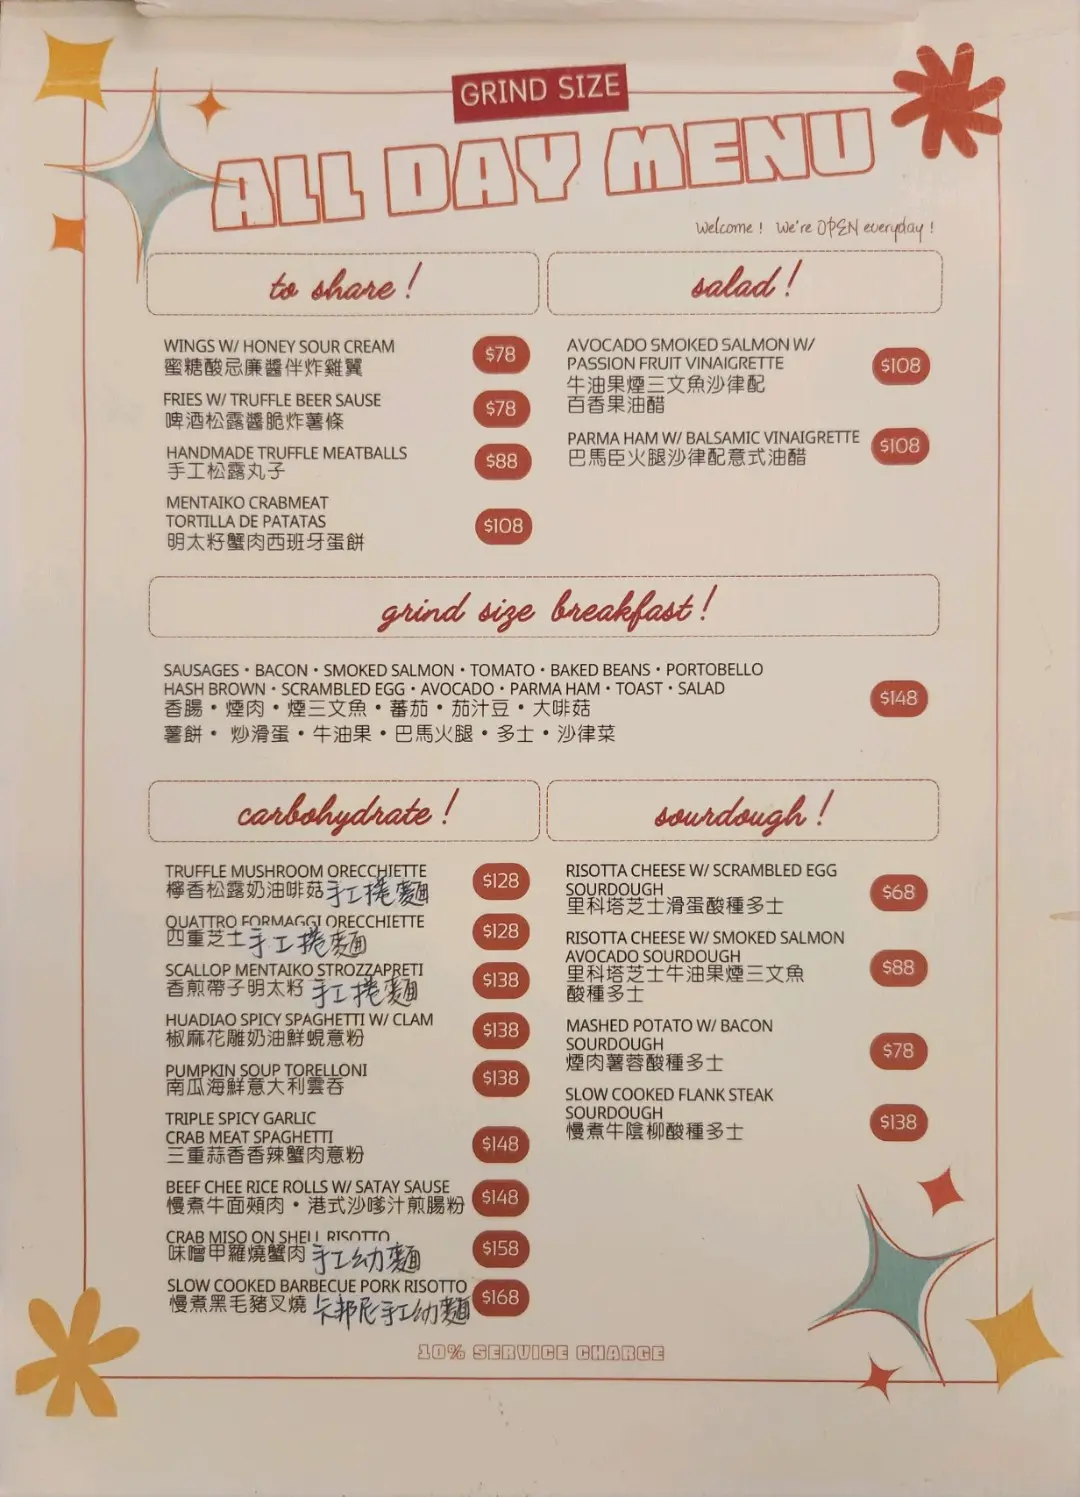 GRIND SIZE
ALL DAY MENU
Welcome! We're OPEN everyday!
to share!
WINGS W/ HONEY SOUR CREAM
蜜糖酸忌廉醬伴炸雞翼
$78
FRIES W/ TRUFFLE BEER SAUSE
啤酒松露醬脆炸薯條
$78
HANDMADE TRUFFLE MEATBALLS
手工松露丸子
$88
MENTAIKO CRABMEAT
TORTILLA DE PATATAS
明太籽蟹肉西班牙蛋餅
$108
salad!
AVOCADO SMOKED SALMON W/
PASSION FRUIT VINAIGRETTE
牛油果煙三文魚沙律配
百香果油醋
$108
PARMA HAM W/ BALSAMIC VINAIGRETTE
巴馬臣火腿沙律配意式油醋
$108
grind size breakfast!
SAUSAGES • BACON • SMOKED SALMON • TOMATO • BAKED BEANS • PORTOBELLO
HASH BROWN • SCRAMBLED EGG • AVOCADO • PARMA HAM • TOAST • SALAD
香腸 • 煙肉 • 煙三文魚 • 蕃茄 • 茄汁豆 • 大啡菇
薯餅 • 炒滑蛋 • 牛油果 • 巴馬火腿 • 多士 • 沙律菜
$148
carbohydrate!
TRUFFLE MUSHROOM ORECCHIETTE
檸香松露奶油啡菇手工捲麵
$128
QUATTRO FORMAGGI ORECCHIETTE
四重芝士手工捲麵
$128
SCALLOP MENTAIKO STROZZAPRETI
香煎帶子明太籽 手工捲麵
$138
HUADIAO SPICY SPAGHETTI W/ CLAM
椒麻花雕奶油鮮蜆意粉
$138
PUMPKIN SOUP TORELLONI
南瓜海鮮意大利雲吞
$138
TRIPLE SPICY GARLIC
CRAB MEAT SPAGHETTI
三重蒜香香辣蟹肉意粉
$148
BEEF CHEE RICE ROLLS W/ SATAY SAUSE
慢煮牛面頰肉 • 港式沙嗲汁煎腸粉
$148
CRAB MISO ON SHELL RISOTTO
味噌甲羅燒蟹肉 手工幼麵
$158
SLOW COOKED BARBECUE PORK RISOTTO
慢煮黑毛豬叉燒 卡邦尼手工幼麵
$168
sourdough!
RISOTTA CHEESE W/ SCRAMBLED EGG
SOURDOUGH
里科塔芝士滑蛋酸種多士
$68
RISOTTA CHEESE W/ SMOKED SALMON
AVOCADO SOURDOUGH
里科塔芝士牛油果煙三文魚
酸種多士
$88
MASHED POTATO W/ BACON
SOURDOUGH
煙肉薯蓉酸種多士
$78
SLOW COOKED FLANK STEAK
SOURDOUGH
慢煮牛陰柳酸種多士
$138
10% SERVICE CHARGE